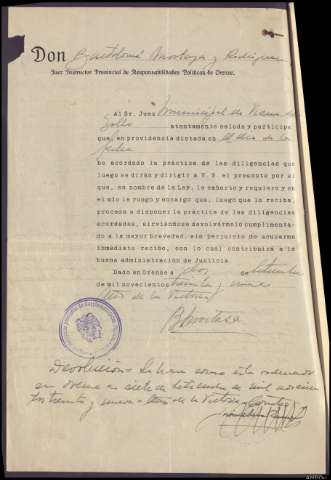 Don Bartolomé Montoya y Rodriguez
Juez Instructor Provincial de Responsabilidades Políticas de Orense.
Al Sr. Juez Municipal de Viana del
Bollo atentamente saluda y participa
que en providencia dictada en el día de la
fecha
ha acordado la práctica de las diligencias que
luego se dirán y dirigir a V. S. el presente por el
que, en nombre de la Ley, le exhorto y requiero y en
el mío le ruego y encargo que, luego que lo reciba,
proceda a disponer la práctica de las diligencias
acordadas, sirviéndose devolvérmelo cumplimenta-
do a la mayor brevedad, sin perjuicio de acusarme
inmediato recibo, con lo cual contribuirá a la
buena administración de Justicia
Dado en Orense a dos de Setiembre
de mil novecientos treinta y nueve
Año de la Victoria
B. Montoya
Devolución = Se hace como está ordenado
en Viana a siete de Setiembre de mil novecien
tos treinta y nueve = Año de la Victoria =